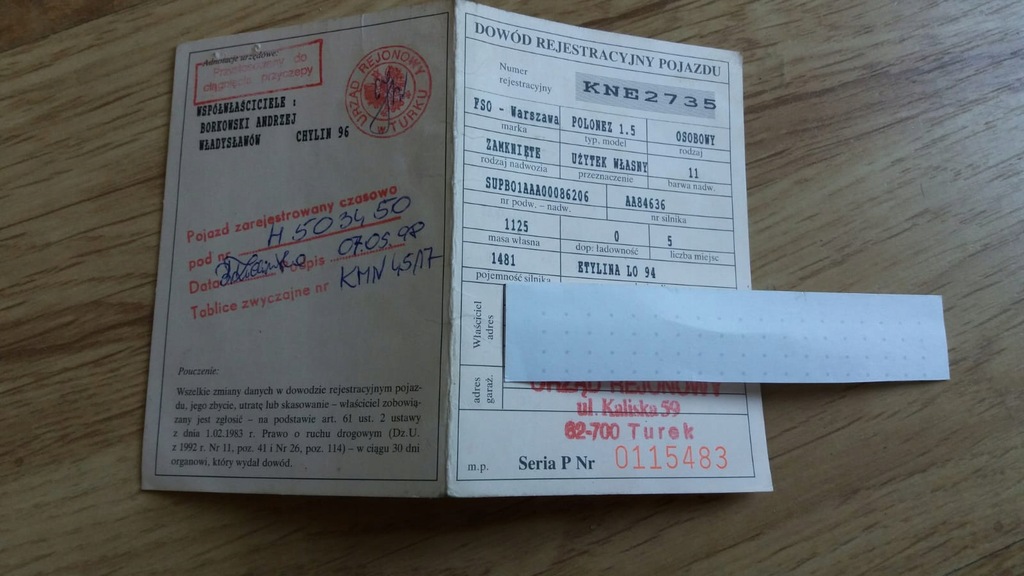 Adnotacje urzędowe:
Przystosowany do
ciągnięcia przyczepy
URZĄD REJONOWY
w TURKU
WSPÓŁWŁAŚCICIELE :
BORKOWSKI ANDRZEJ
WŁADYSŁAWÓW CHYLIN 96
Pojazd zarejestrowany czasowo
pod nr H.503450
Data podpis 07.05.98
Tablice zwyczajne nr KMN 45/17
Pouczenie:
Wszelkie zmiany danych w dowodzie rejestracyjnym pojaz-
du, jego zbycie, utratę lub skasowanie – właściciel zobowią-
zany jest zgłosić – na podstawie art. 61 ust. 2 ustawy
z dnia 1.02.1983 r. Prawo o ruchu drogowym (Dz.U.
z 1992 r. Nr 11, poz. 41 i Nr 26, poz. 114) – w ciągu 30 dni
organowi, który wydał dowód.
DOWÓD REJESTRACYJNY POJAZDU
Numer
rejestracyjny
KNE2735
FSO - Warszawa POLONEZ 1.5 OSOBOWY
marka typ. model rodzaj
ZAMKNIĘTE UŻYTEK WŁASNY 11
rodzaj nadwozia przeznaczenie barwa nadw.
SUPB01AAA00086206 AA84636
nr podw. – nadw. nr silnika
1125 0 5
masa własna dop: ładowność liczba miejsc
1481 ETYLINA LO 94
pojemność silnika
Właściciel
adres
adres
garaż.
URZĄD REJONOWY
ul. Kaliska 59
62-700 Turek
m.p. Seria P Nr 0115483